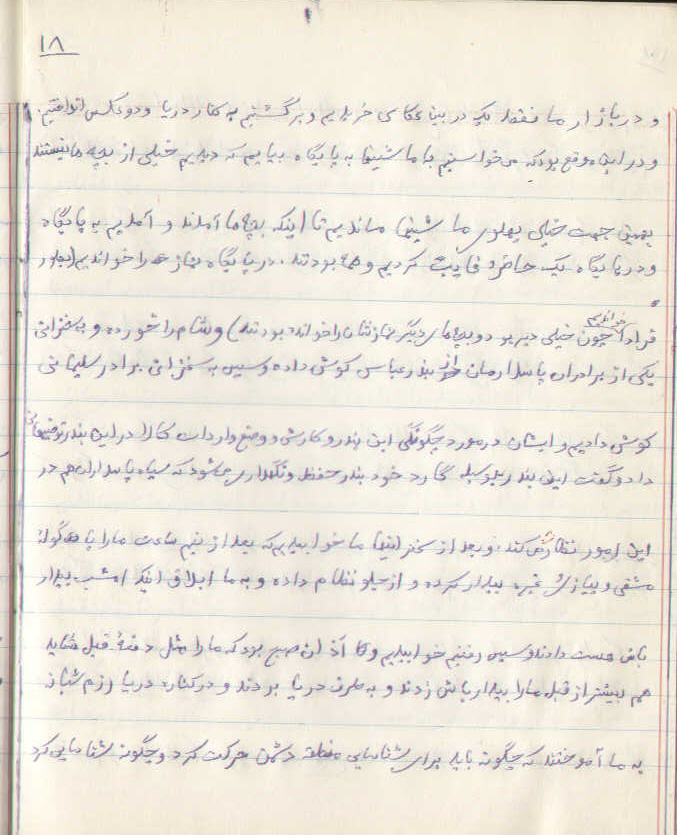 ۱۸
و در بازار ما فقط یک دوربین عکاسی خریدیم و برگشتیم به کنار دریا و دو عکس انداختیم.
و در این موقع بود که می‌خواستیم با ماشینها به پایگاه بیاییم که دیدیم خیلی از بچه ها نیستند
بهمین جهت خیلی پهلوی ماشینها ماندیم تا اینکه بچه‌ها آمدند و آمدیم به پایگاه
و در پایگاه یک حاضر و غایب کردیم و همه بودند. در پایگاه نماز را خواندیم (بطور
فرادا خواندیم چون خیلی دیر بود و بچه‌های دیگر نمازشان را خوانده بودند) و شام را خورده و به سخنرانی
یکی از برادران پاسدارمان از بندرعباس گوش داده و سپس به سخنرانی برادر سلیمانی
گوش دادیم و ایشان در مورد چگونگی این بندر و کارش و وضع واردات کالا در این بندر توضیحاتی
داد و گفت این بندر بوسیله گارد خود بندر حفظ و نگهداری میشود که سپاه پاسداران هم در
این امور نظارت کند. و بعد از سخنرانیها ما خوابیدیم که بعد از نیم ساعت ما را با گلوله
مشقی و غیره بیدار کرده و از جلو نظام داده و به ما ابلاغ اینکه امشب بیدار
باش هست دادند و سپس رفتیم خوابیدیم و تا اذان صبح بود که ما را مثل دفعهٔ قبل شاید
هم بیشتر از قبل ما را بیدار باش زدند و به طرف دریا بردند و در کنار دریا رزم شبانه
به ما آموختند که چگونه باید برای شناسایی منطقه دشمن حرکت کرد و چگونه شناسایی کرد